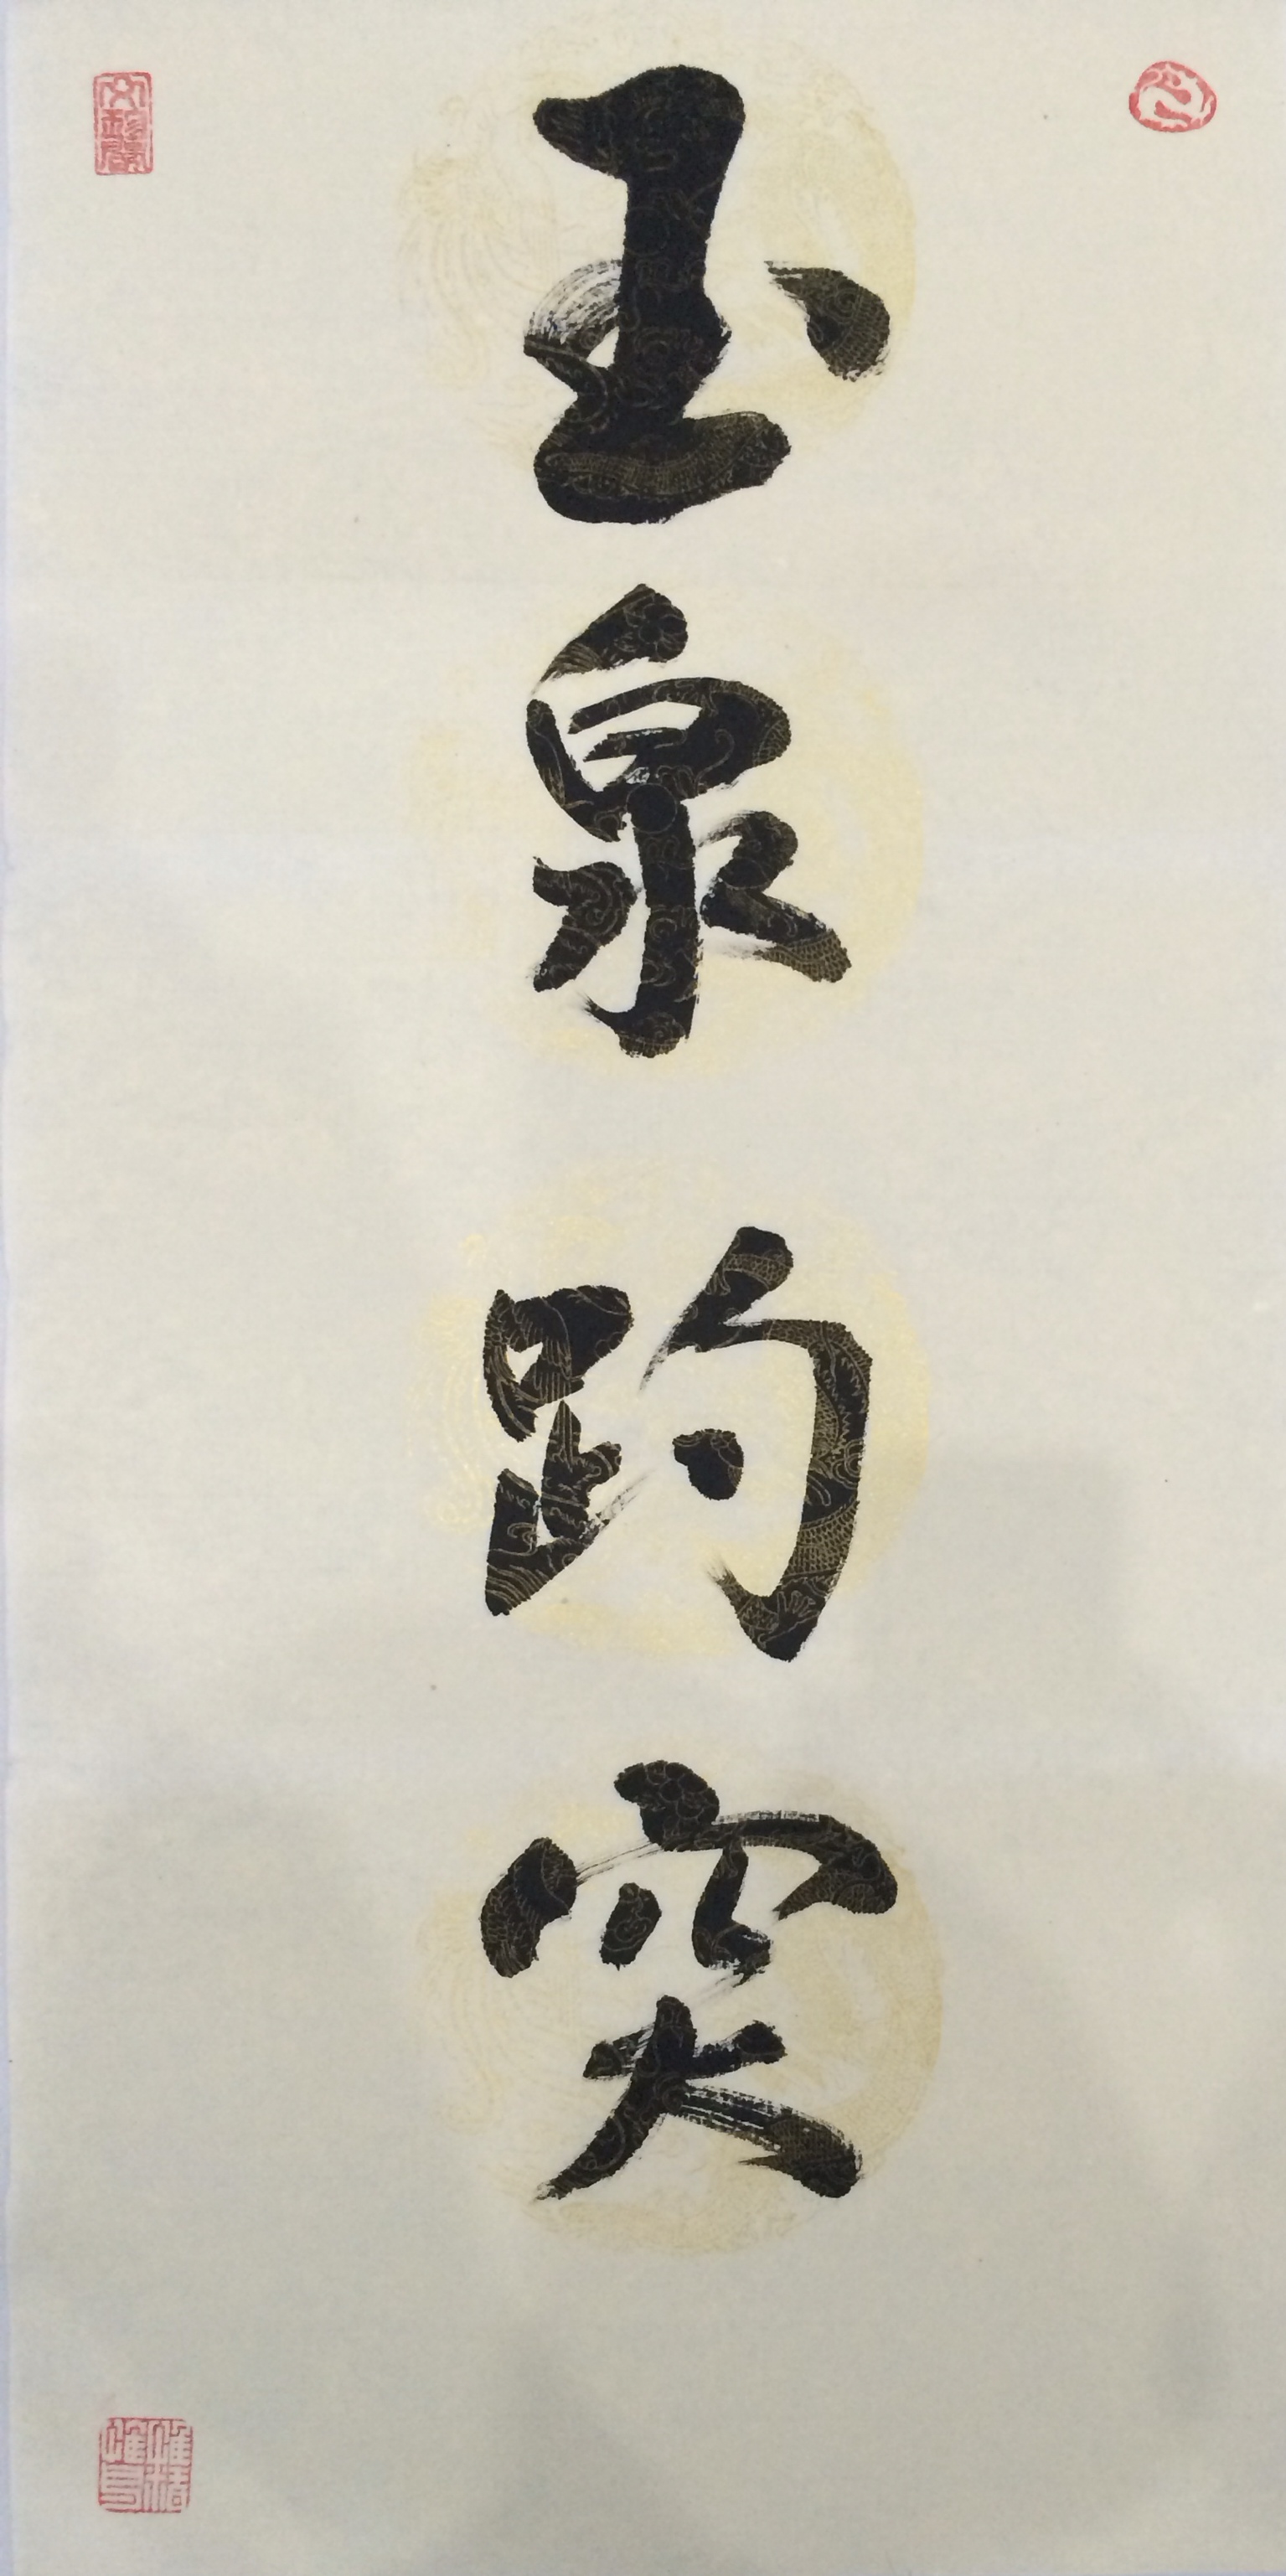 玉泉趵突